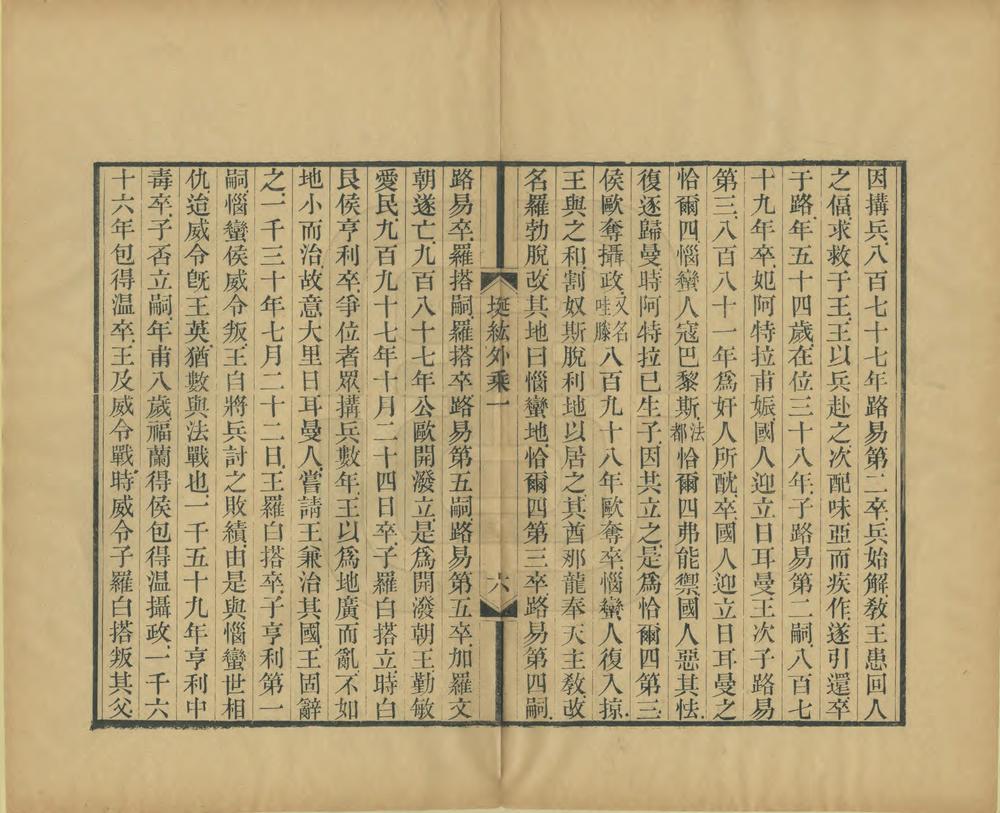 因搆兵、八百七十七年路易第二卒、兵始解敎王患回人
之偪求救于王、王以兵赴之次配味亞而疾作遂引還卒
于路、年五十四歲、在位三十八年、子路易第二嗣、八百七
十九年卒、妃阿特拉甫娠、國人迎立日耳曼王次子路易
第三、八百八十一年爲奸人所酖卒國人迎立日耳曼之
恰爾四惱蠻人寇巴黎斯、法都恰爾四弗能禦國人惡其怯、
復逐歸曼時阿特拉已生子、因共立之、是爲恰爾四第三
侯歐奪攝政、又名哇滕八百九十八年歐奪卒、惱蠻人復入掠、
王與之和、割奴斯脫利地以居之其酋那龍奉天主敎、改
名羅勃脫、改其地曰惱蠻地、恰爾四第三卒、路易第四嗣、
埏紘外乘一 六
路易卒、羅搭嗣、羅搭卒路易第五嗣路易第五卒、加羅文
朝遂亡、九百八十七年公歐開潑立、是爲開潑朝、王勤敏
愛民、九百九十七年十月二十四日卒、子羅白搭立、時白
艮侯亨利卒、爭位者眾搆兵數年、王以爲地廣而亂、不如
地小而治、故意大里日耳曼人、嘗請王兼治其國、王固辭
之、一千三十一年七月二十二日、王羅白搭卒、子亨利第一
嗣惱蠻侯威令叛、王自將兵討之敗績、由是與惱蠻世相
仇、迨威令旣王英、猶數與法戰也、一千五十九年亨利中
毒卒、子否立嗣、年甫八歲、福蘭得侯包得温攝政、一千六
十六年包得温卒、王及威令戰、時威令子羅白搭叛其父